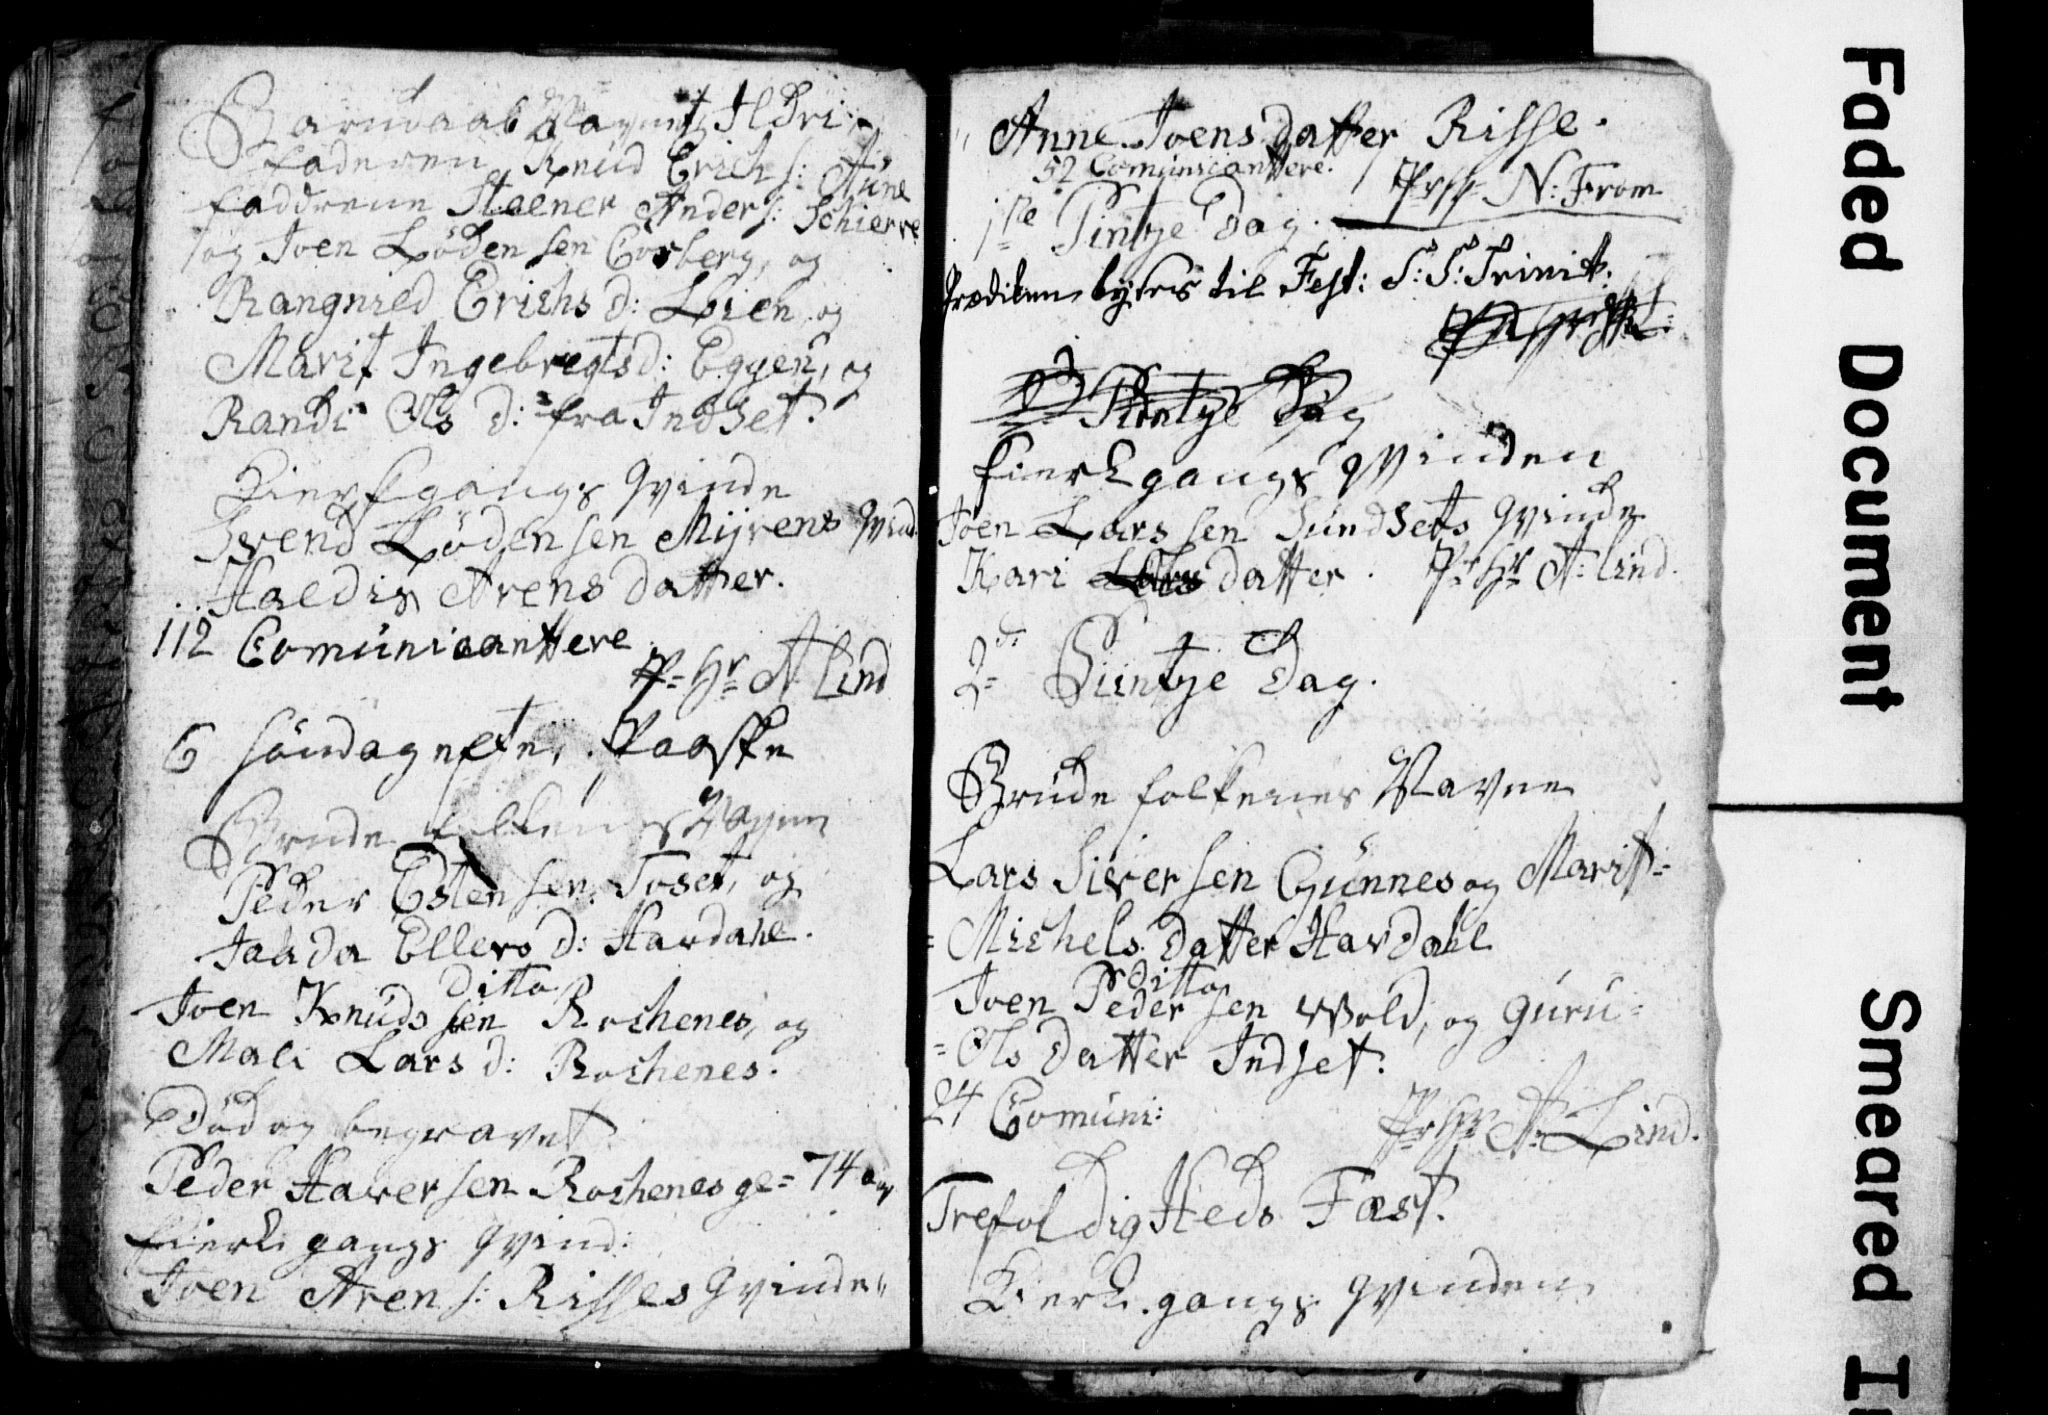 Barndaab Navnet Ildri
Faderen Knud Erich s: Aüne
faddrene Staener Anders: Schierve
og Joen Lödensen Gorberg, og
Rangnild Erichs d: Lien, og
Marit Ingebregts d: Eggen, og
Randi Ols d: fra Indset.
Kierkgangs Qvinde
Svend Lödensen Mÿrens Qvind
Haldis Arens datter.
112 Comunicanttere
P= Hr= A Lind
6 söndag efter Paaske
Brude folkenes Navne
Peder Estensen Toset, og
Ellers d: Hardahl.
Ditto
Joen Knüdssen Rochenes, og
Mali Lars d: Rochenes.
Död og begravet
Peder Haversen Rochenes ge= 74 aar
Kierke gangs Qvind:
Joen Aren s: Risses Qvinde"
Anne Joens datter Risse.
52 Comunicanttere.
Pr N: From
1ste Pintze Dag.
Prædiken byttes til Fest: S: S: Trinit:
Pintze Dag
Kierkgangs Qvinden
Joen Larssen Sündsets Qvinde
Kari datter. Pr Hr A: Lind.
2d Pintze Dag.
Brüde folkenes Navne
Lars Siversen Günnes og Marit=
=Michels datter Hardahl
Ditto
Joen Pedersen Wold, og Guru=
=Ols datter Indset.
24 Comuni:
Pr Hr A: Lind.
TrefoldigHeds Fæst.
Kierke gangs Qvinden
Faded Document
Smeared